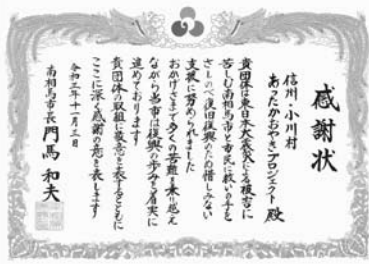 感謝状
信州・小川村
あったかおやきプロジェクト 殿
貴団体は東日本大震災による被害に
苦しむ南相馬市と市民に救いの手を
さしのべ復旧復興のため惜しみない
支援に努められました
おかげさまで多くの苦難を乗り越え
ながら当市は復興の歩みを着実に
進めております
貴団体の取組に敬意を表するとともに
ここに深く感謝の意を表します
令和三年十一月三日
南相馬市長 門馬 和夫